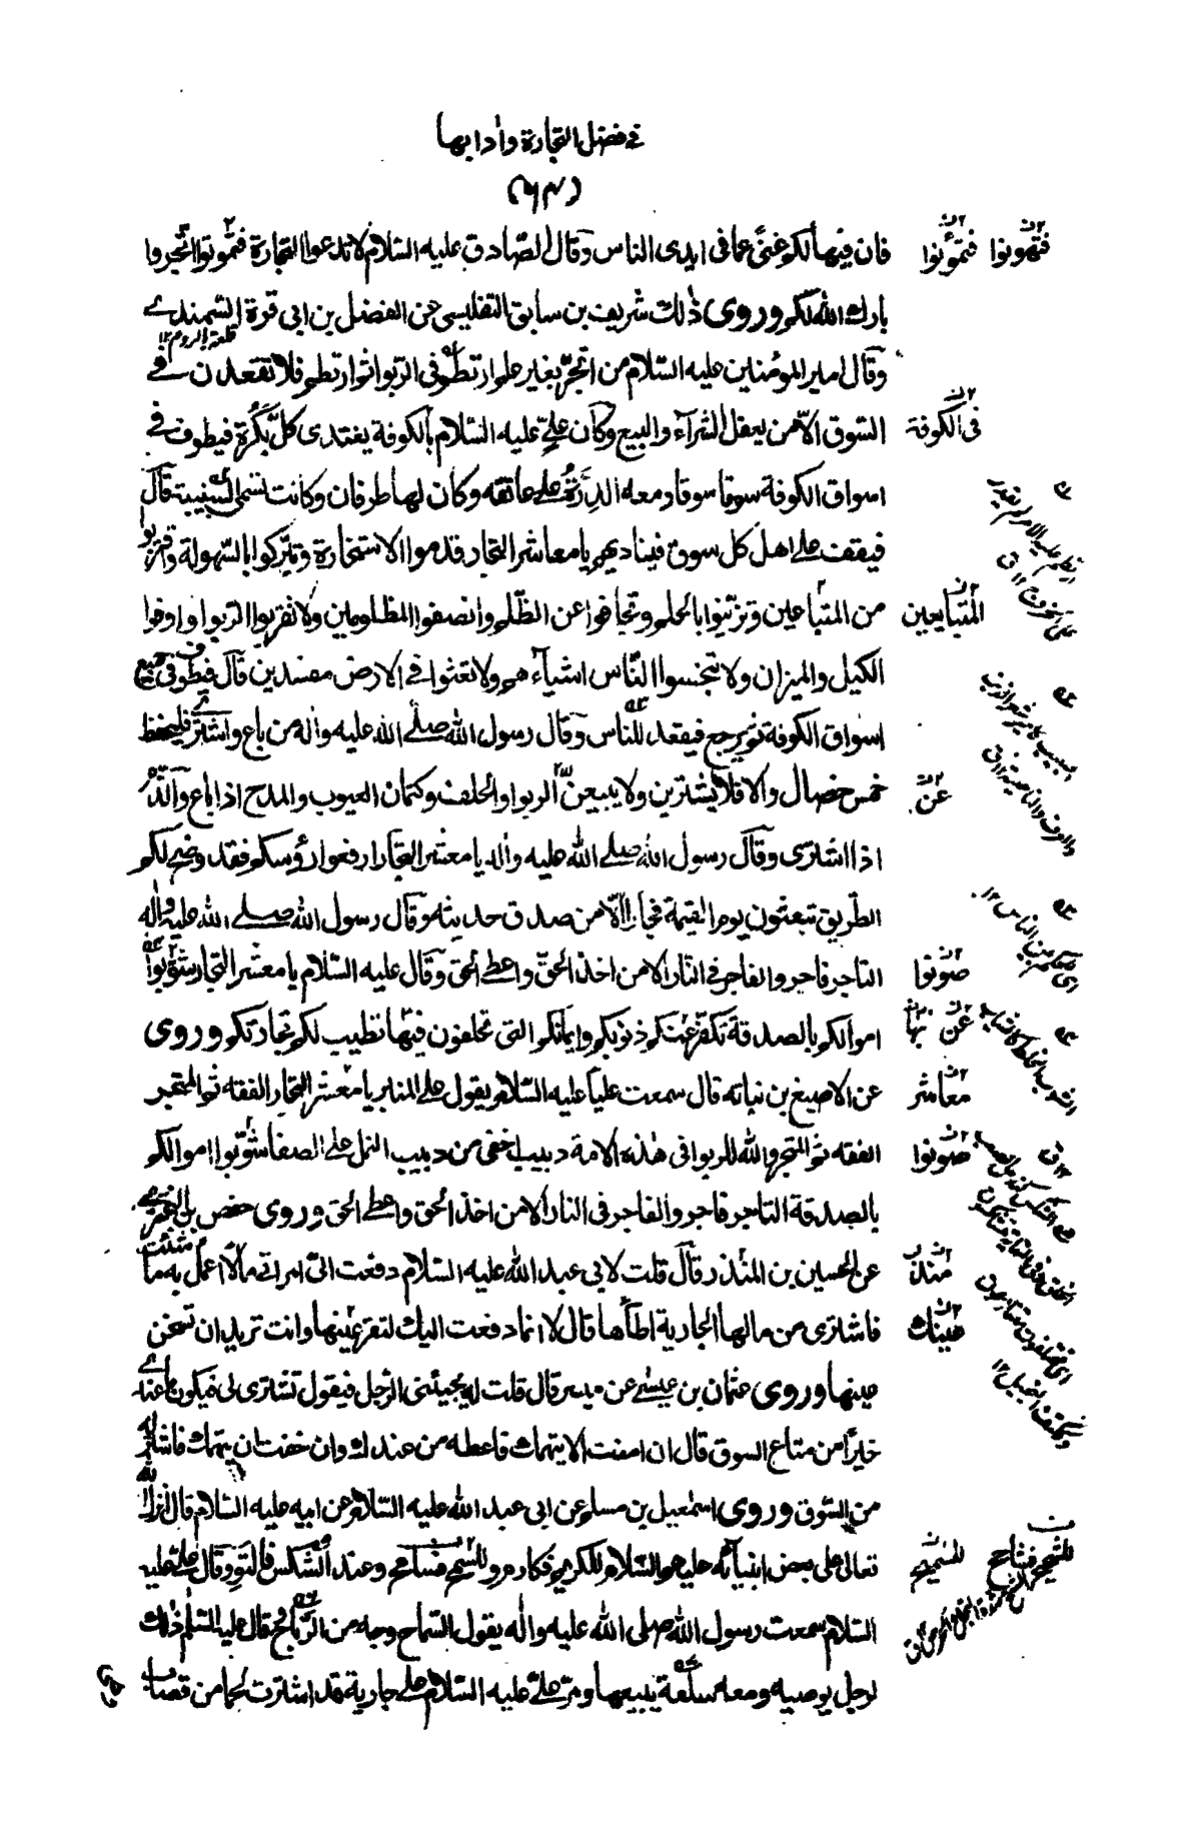 في فضل التجارة وادابها
فان فيها لكم غنىً عما فى ايدى الناس وقال الصّادق عليه السّلام لا تدعوا التجارة فتمونوا اتّجروا
بارك الله لكم وروى ذلك شريف بن سابق التفليسي عن الفضل بن ابى قرة السّمندي
وقال امير المؤمنين عليه السّلام من اتّجر بغير علم ارتطم فى الربوا ثم ارتطم فلا تقعدن في
السّوق الّا من يعقل الشرآء والبيع وكان علىّ عليه السّلام بالكوفة يغتدى كلّ بكرة فيطوف في
اسواق الكوفة سوقا سوقا ومعه الدِرّة على عاتقه وكان لها طرفان وكانت تسمى السّبيبة قال
فيقف على اهل كل سوق فيناديهم يا معاشر التجار قدموا الاستخارة وتبرّكوا بالسّهولة واقتربوا
من المتباعين وتزيّنوا بالحلم وتجافوا عن الظّلم وانصفوا المظلومين ولا تقربوا الرّبوا واوفوا
الكيل والميزان ولا تبخسوا النّاس اشيآءهم ولا تعثوا في الارض مفسدين قال فيطوف فى جميع
اسواق الكوفة ثم يرجع فيقعد للنّاس وقال رسول الله صلى الله عليه وآله من باع واشترى فليحفظ
خمس خصال والا فلا يشترين ولا يبيعنّ الربوا والحلف وكتمان العيوب والمدح اذا باع والذّم
اذا اشترى وقال رسول الله صلى الله عليه وآله يا معشر التجار ارفعوا رؤسكم فقد وضح لكم
الطّريق تبعثون يوم القيمة فجارا الّا من صدق حديثه وقال رسول الله صلى الله عليه وآله
التاجر فاجر والفاجر فى النّار الا من اخذ الحقّ واعطى الحق وقال عليه السّلام يا معشر التجار شوّبوا
اموالكم بالصدقة تكفّر عنكم ذنوبكم وايمانكم التى تحلفون فيها تطيب لكم تجارتكم وروى
عن الاصبغ بن نباته قال سمعت علياً عليه السّلام يقول على المنبر يا معشر التجار الفقه ثم المتجر
الفقه ثم المتجر والله للربوا فى هذه الامة دبيب اخفى من دبيب النمل على الصفا شوّبوا اموالكم
بالصدقة التاجر فاجر والفاجر فى النار الا من اخذ الحق واعطى الحق وروى حفص بن البخترى
عن الحسين بن المنذر قال قلت لابي عبد الله عليه السّلام دفعت الىّ امرأتى مالًا اعمل به ما شئت
فاشترى من مالها الجارية اطأها قال لا انما دفعت اليك لتقر عينها وانت تريد ان تسخن
عينها وروى عثمان بن عيسى عن ميسر قال قلت له يجيئنى الرّجل فيقول تشترى لى فيكون ما عندى
خيرًا من متاع السوق قال ان امنت الا يتهمك فاعطه من عندك وان خفت ان يتهمك فاشتر له
من السّوق وروى اسمعيل بن مسلم عن ابى عبد الله عليه السّلام عن ابيه عليه السّلام قال انزل الله
تعالى على بعض انبيائه عليهم السّلام للكريم فكارم وللسّمح فسامح وعند الشّكس فالتو وقال على عليه
السّلام سمعت رسول الله صلى الله عليه وآله يقول السّماح وجه من الرّباح قال عليه السّلام ذلك
لرجل يوصيه ومعه سلعة يبيعها ومرّ علىّ عليه السّلام على جارية قد اشترت لحما من قصاب
فتهونوا
فتموّنوا
فى الكوفة
المتبايعين
عن
صونوا
عن
بها
معاشر
صونوا
منذر
عينك
للسّميح